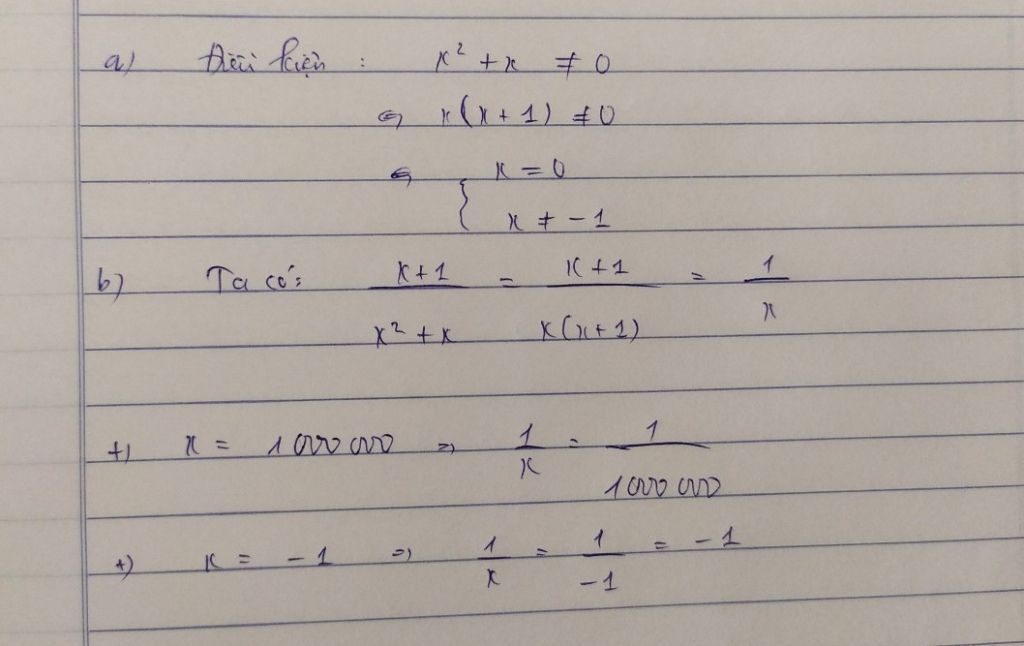 a) Điều kiện : x² + x ≠ 0
⇔ x(x + 1) ≠ 0
⇔ { x = 0
x ≠ -1
b) Ta có: (x+1)/(x² + x) = (x+1)/(x(x+1)) = 1/x
+) x = 1000000 => 1/x = 1/1000000
+) x = -1 => 1/x = 1/-1 = -1